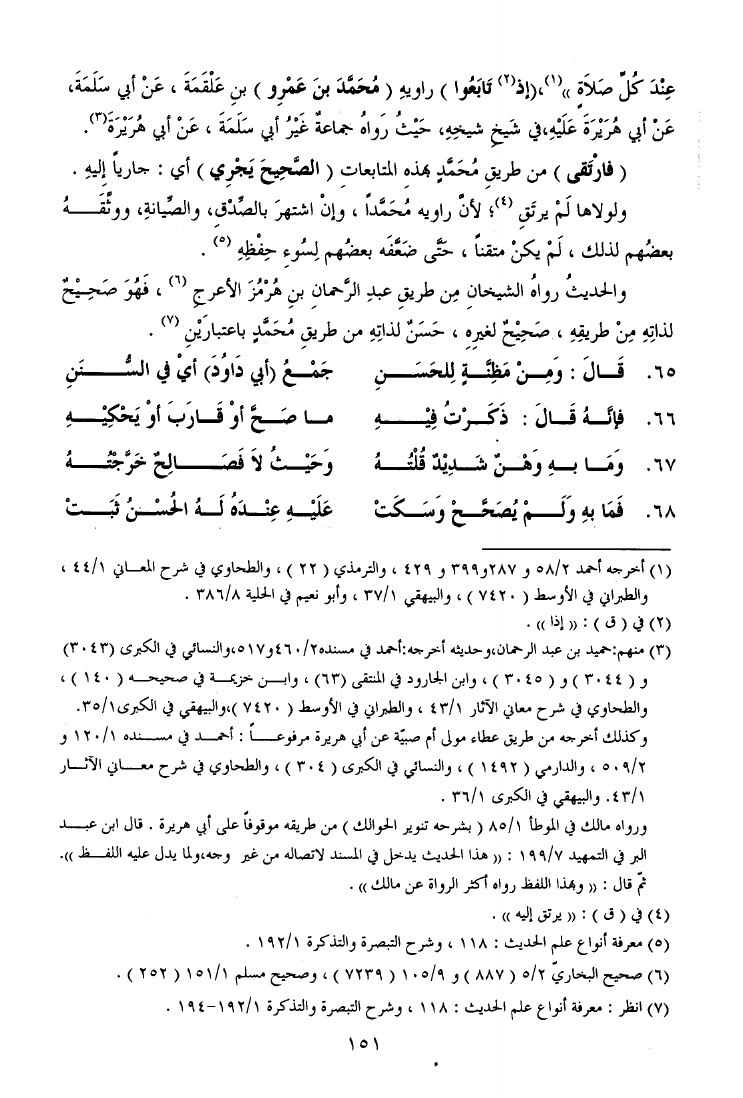 عِنْدَ كُلِّ صَلاَةٍ »(١)،(إذ(٢) تَابَعُوا ) راويهِ ( مُحَمَّدَ بنَ عَمْرِو ) بنِ عَلْقَمَةَ ، عَنْ أبي سَلَمَةَ،
عَنْ أبي هُرَيْرَةَ عَلَيْهِ،في شَيخِ شيخِهِ، حَيْثُ رَواهُ جماعةٌ غَيْرُ أبي سَلَمَةَ ، عَنْ أبي هُرَيْرَةَ(٣).
( فَارْتَقى ) من طريقِ مُحَمَّدٍ بهذه المتابعاتِ ( الصَّحِيحَ يَجْرِي ) أي : جارياً إليهِ .
ولولاها لَمْ يرتَقِ (٤)؛ لأنَّ راويه مُحَمَّداً ، وإنْ اشتهرَ بالصِّدْقِ، والصِّيانةِ، ووثَّقَـــهُ
بعضُهم لذلك ، لَمْ يكنْ متقناً ، حَتَّى ضَعَّفَه بعضُهم لِسُوءِ حِفْظِهِ (٥) .
والحديثُ رواهُ الشيخان مِن طريقِ عبدِ الرَّحمانِ بنِ هُرْمُزَ الأعرجِ (٦) ، فَهُوَ صَحِيْحٌ
لذاتِهِ مِنْ طريقِهِ ، صَحِيْحٌ لغيرِهِ ، حَسَنٌ لذاتِهِ من طريقِ مُحَمَّدٍ باعتبارَيْنِ (٧) .
٦٥. قَــالَ : وَمِـنْ مَظِنَّـــةٍ لِلحَسَــنِ جَمْــعُ (أبي دَاوُدَ) أيْ في السُّــــنَنِ
٦٦. فإنَّــهُ قَــالَ : ذَكَــرْتُ فِيْـــهِ مــا صَــحَّ أوْ قَــارَبَ أوْ يَحْكِيْــهِ
٦٧. وَمَــا بــهِ وَهْــنٌ شَــدِيْدٌ قُلْتُــهُ وَحَيْــثُ لاَ فَصَــــالِحٌ خَرَّجْتُـــهُ
٦٨. فَمَا بِهِ وَلَـــمْ يُصَحَّـحْ وَسَـكَتْ عَلَيْــهِ عِنْــدَهُ لَــهُ الحُسْــنُ ثَبَــتْ
(١) أخرجه أحمد ٥٨/٢ و ٢٨٧و٣٩٩ و ٤٢٩ ، والترمذي ( ٢٢ ) ، والطحاوي في شرح المعـاني ٤٤/١ ،
والطبراني في الأوسط ( ٧٤٢٠ ) ، والبيهقي ٣٧/١ ، وأبو نعيم في الحلية ٣٨٦/٨ .
(٢) في ( ق ) : « إذا » .
(٣) منهم:حميد بن عبد الرحمان،وحديثه أخرجه:أحمد في مسنده٤٦٠/٢و٥١٧،والنسائي في الكبرى (٣٠٤٣)
و ( ٣٠٤٤ ) و ( ٣٠٤٥ ) ، وابن الجارود في المنتقى (٦٣) ، وابــن خزيمــة في صحيحــه ( ١٤٠ ) ،
والطحاوي في شرح معاني الآثار ٤٣/١ ، والطبراني في الأوسط ( ٧٤٢٠ )،والبيهقي في الكبرى٣٥/١.
وكذلك أخرجه من طريق عطاء مولى أم صبيّة عن أبي هريرة مرفوعـــاً : أحمــد في مســنده ١٢٠/١ و
٥٠٩/٢ ، والدارمي ( ١٤٩٢ ) ، والنسائي في الكبرى ( ٣٠٤ ) ، والطحاوي في شرح معــاني الآثـار
٤٣/١. والبيهقي في الكبرى ٣٦/١ .
ورواه مالك في الموطأ ٨٥/١ ( بشرحه تنوير الحوالك ) من طريقه موقوفاً على أبي هريرة . قال ابن عبــد
البر في التمهيد ١٩٩/٧ : « هذا الحديث يدخل في المسند لاتصاله من غير وجه،ولما يدل عليه اللفــظ ».
ثمّ قال : « وبهذا اللفظ رواه أكثر الرواة عن مالك » .
(٤) في ( ق ) : « يرتق إليه » .
(٥) معرفة أنواع علم الحديث : ١١٨ ، وشرح التبصرة والتذكرة ١٩٢/١ .
(٦) صحيح البخاريّ ٥/٢ ( ٨٨٧ ) و ١٠٥/٩ ( ٧٢٣٩ ) ، وصحيح مسلم ١٥١/١ ( ٢٥٢ ) .
(٧) انظر : معرفة أنواع علم الحديث : ١١٨ ، وشرح التبصرة والتذكرة ١٩٢/١–١٩٤ .
١٥١